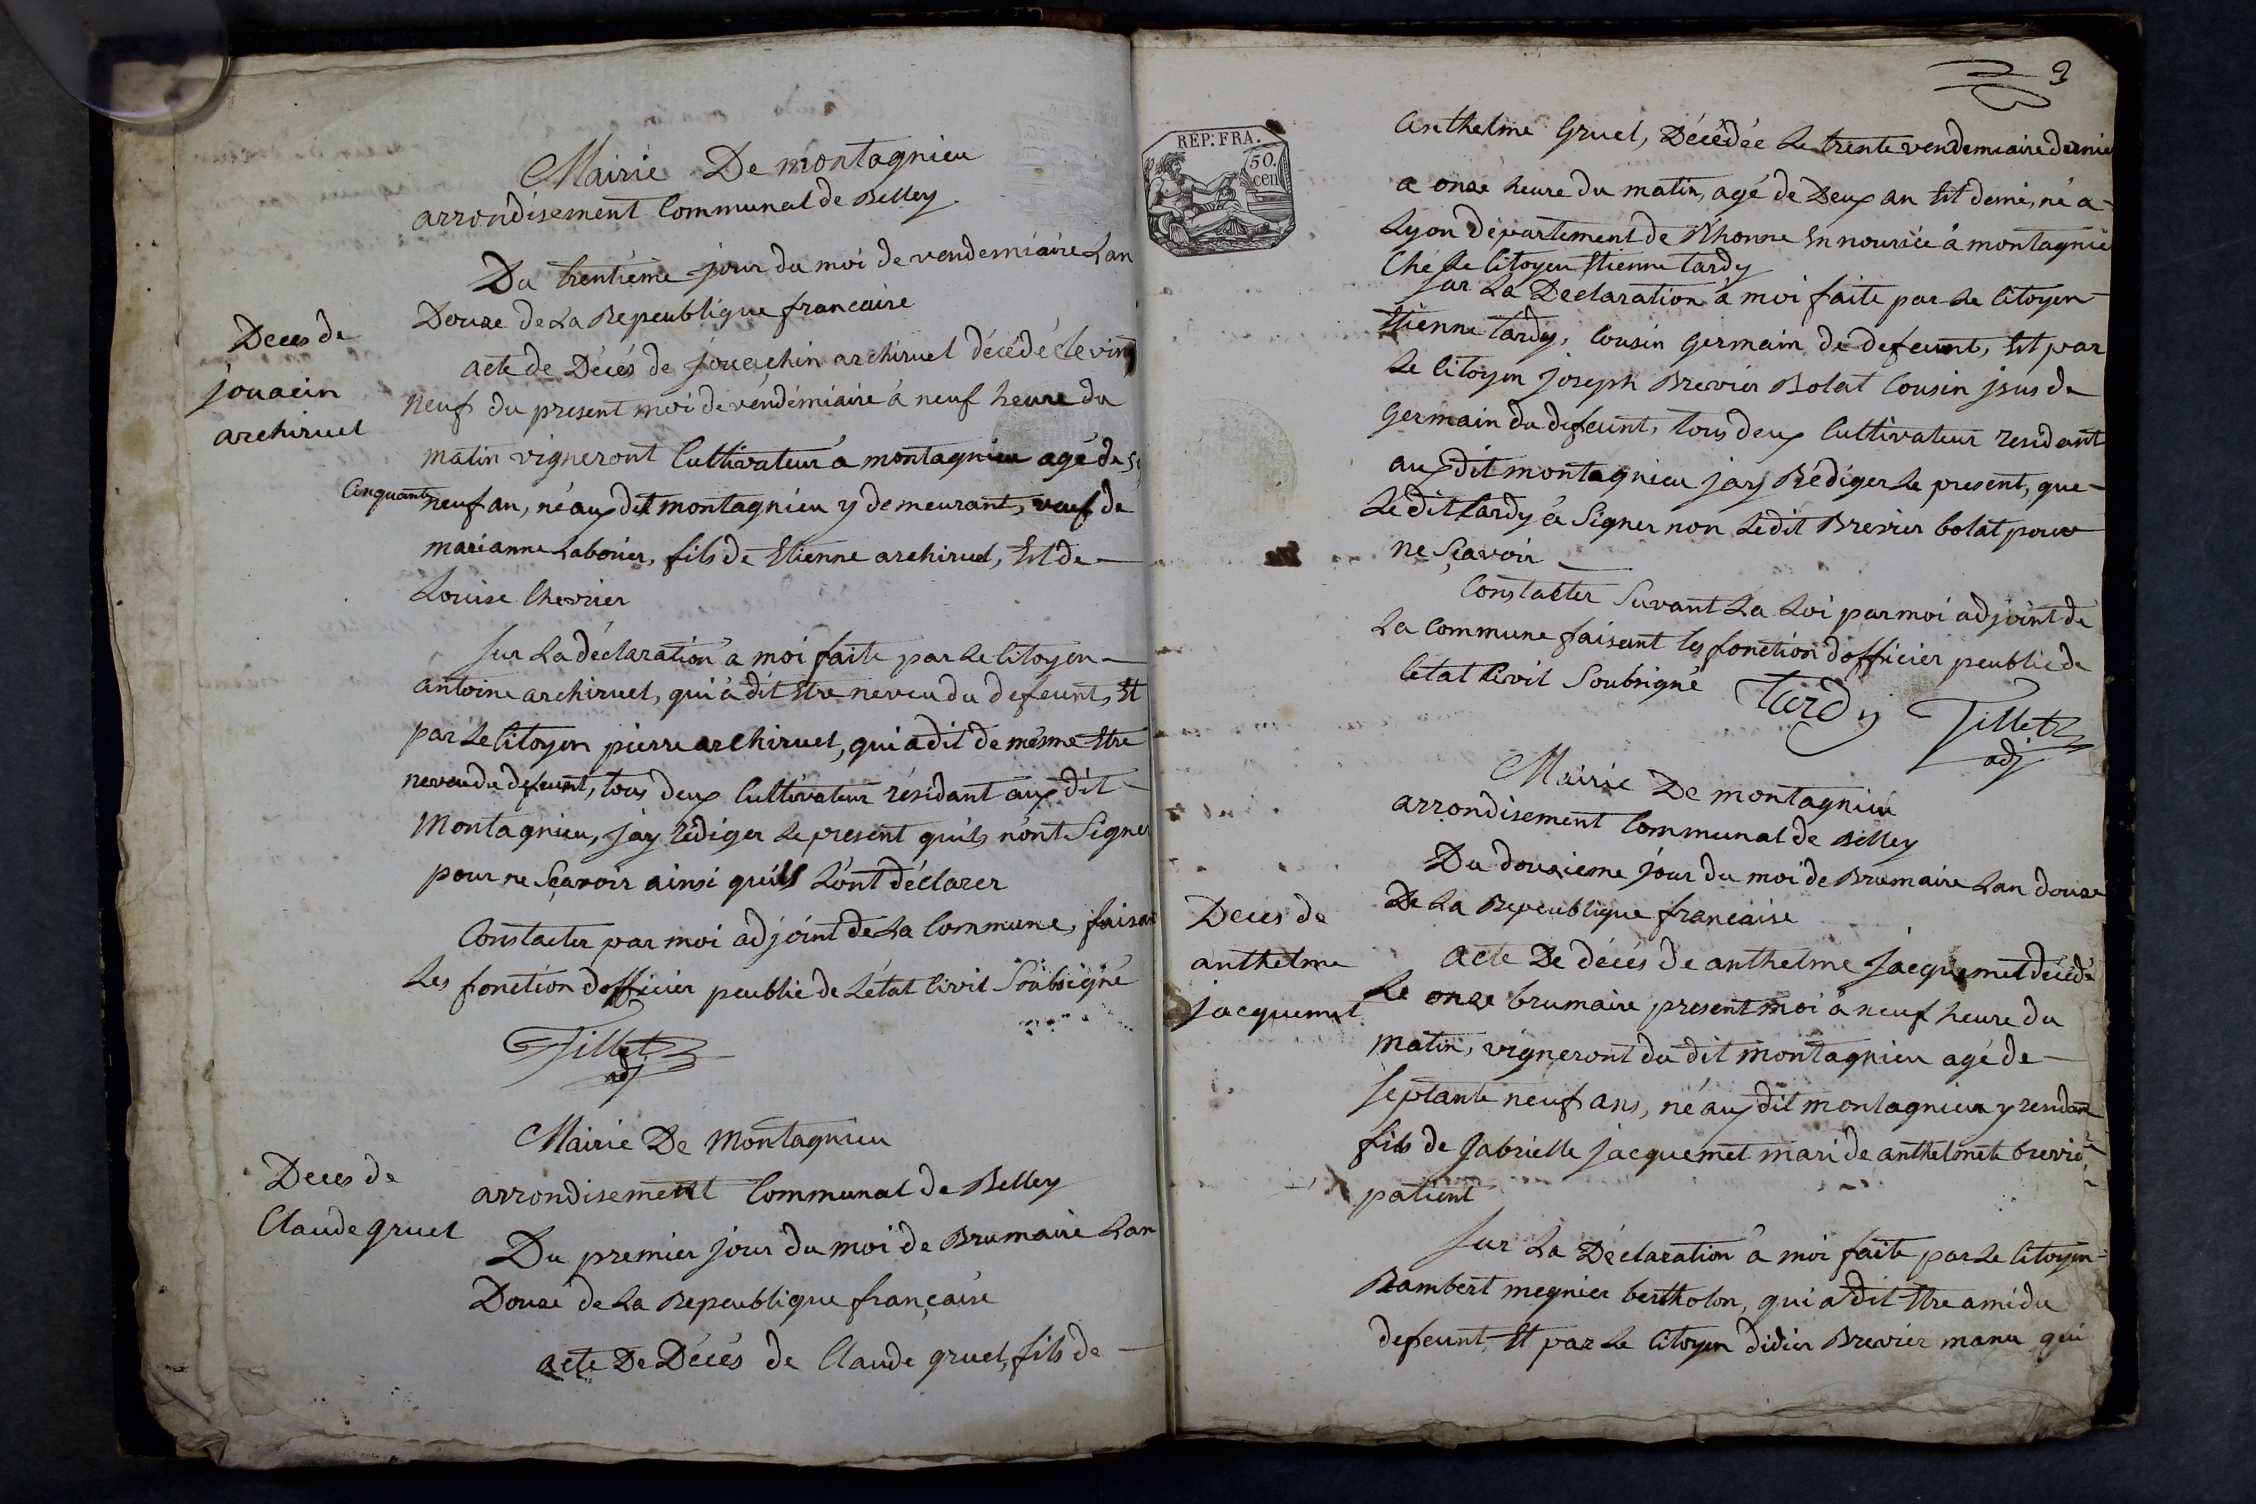 Mairie De montagnieu
arrondisement Communal de Belley
Du trentieme jour du moi de vendemiaire Lan
Douze de La Repeublique francaise
Deces de
jouacin
archiruel
acte de Décés de jouachin archiruel décédé le vint
neuf du present moi de vendémiaire á neuf heure du
matin vigneront Cultivateur á montagnieu agé de
Cinquante neuf an, né aux dit montagnieu y demeurant, veuf de
marianne Laborier, fils de Etienne archiruel, Et de
Louise Chevrier
Sur La déclaration á moi faite par Le Citoyen
antoine archiruel, qui á dit Etre neveu du defeunt, Et
par Le Citoyen pierre archiruel, qui a dit de mésme Etre
neveu du defeunt, tous deux Cultivateur résidant aux dit
Montagnieu, j'ay rédiger Le present quils n'ont Signer
pour ne Sçavoir ainsi quils L'ont déclarer
Constater par moi adjoint de La Commune, faisant
Les fonction dofficier peublic de L'état Civil Soubsigné
Tillet
adj
Mairie De Montagnieu
Deces de
Claude gruel
arrondisement Communal de Belley
Du premier jour du moi de Brumaire Lan
Douze de La Repeublique française
acte De Décés de Claude gruel, fils de
3
REP. FRA.
50.
cen
Anthelme Gruel, Décédée Le trente vendemiaire dernie
a onze heure du matin, agé de Deux an Et demi, né a
Lyon département de Rhonne En nourice á montagnie
Ché Le Citoyen Etienne tardy
Sur La Declaration á moi faite par Le Citoyen
Etienne tardy, Cousin Germain de defeunt, Et par
Le Citoyen joseph Brevier Bolat Cousin jsus de
Germain du defeunt, tous deux Cultivateur residant
aux dit montagnieu jay Rédiger Le present, que
Le dit tardy á Signer non Le dit Brevier bolat pour
ne Sçavoir
Constatter Suvant La Loi par moi adjoint de
La Commune faisant les fonction dofficier peublic de
Letat Civil Soubsigné
Tardy Tillet
adj
Mairie De montagnieu
arrondisement Communal de Belley
Du douzieme jour du moi de Brumaire Lan douze
De La Repeublique francaise
Deces de
anthelme
jacquemet
Acte De décés de anthelme jacquemet décédé
Le onze brumaire present moi á neuf heure du
matin, vigneront du dit montagnieu agé de
Septante neuf ans, né aux dit montagnieu y residant
fils de Gabrielle jacquemet mari de anthelmete brevie
patient
Sur La Déclaration á moi faite par Le Citoyen
Rambert megnier bertholon, qui a dit Etre ami du
defeunt, Et par Le Citoyen didier Brevier manu qui